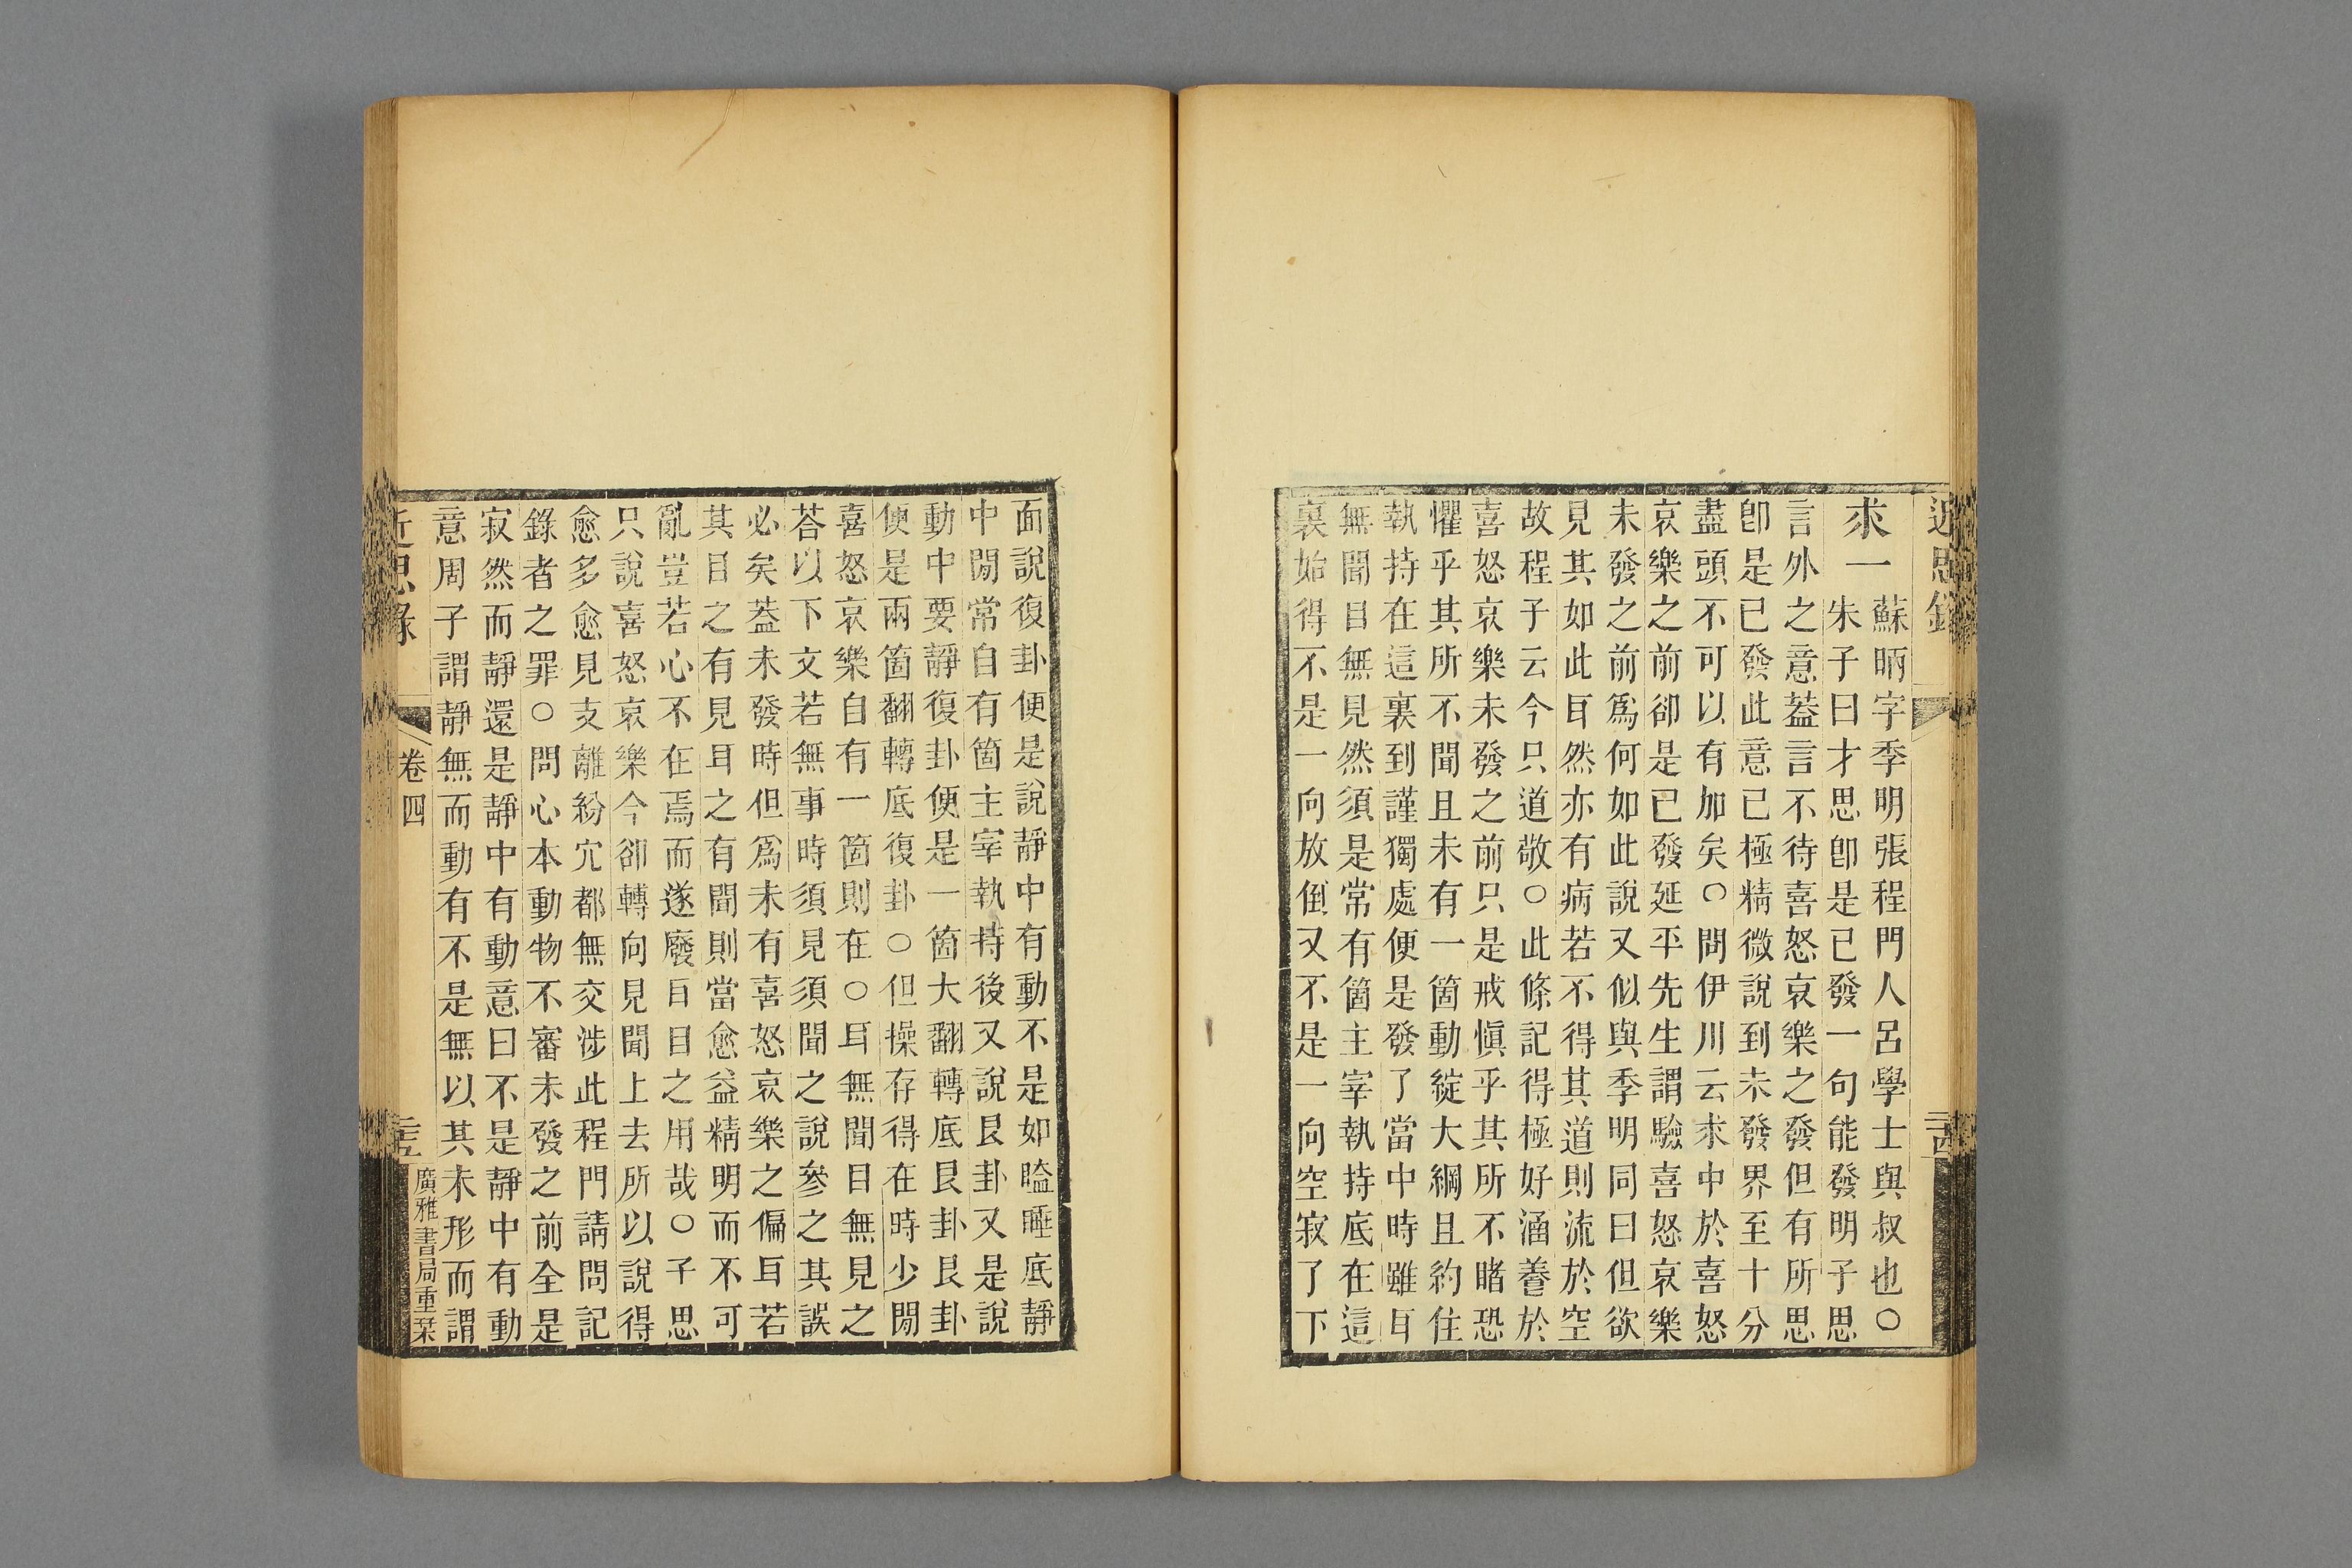 近思錄
求一蘇昞字季明張程門人呂學士與叔也○
朱子曰才思卽是已發一句能發明子思
言外之意葢言不待喜怒哀樂之發但有所思
卽是已發此意已極精微說到未發界至十分
盡頭不可以有加矣○問伊川云求中於喜怒
哀樂之前卻是已發延平先生謂驗喜怒哀樂
未發之前爲何如此說又似與季明同曰但欲
見其如此耳然亦有病若不得其道則流於空
故程子云今只道敬○此條記得極好涵養於
喜怒哀樂未發之前只是戒愼乎其所不睹恐
懼乎其所不聞且未有一箇動綻大綱且約住
執持在這裏到謹獨處便是發了當中時雖耳
無聞目無見然須是常有箇主宰執持底在這
裏始得不是一向放倒又不是一向空寂了下
面說復卦便是說靜中有動不是如瞌睡底靜
中閒常自有箇主宰執持後又說艮卦又是說
動中要靜復卦便是一箇大翻轉底艮卦艮卦
便是兩箇翻轉底復卦○但操存得在時少閒
喜怒哀樂自有一箇則在○耳無聞目無見之
荅以下文若無事時須見須聞之說參之其誤
必矣葢未發時但爲未有喜怒哀樂之偏耳若
其目之有見耳之有聞則當愈益精明而不可
亂豈若心不在焉而遂廢耳目之用哉○子思
只說喜怒哀樂今卻轉向見聞上去所以說得
愈多愈見支離紛宂都無交涉此程門請問記
錄者之罪○問心本動物不審未發之前全是
寂然而靜還是靜中有動意曰不是靜中有動
意周子謂靜無而動有不是無以其未形而謂
近思錄 卷四 廣雅書局重栞